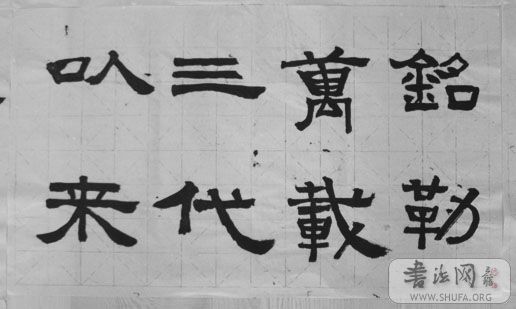 銘勒
萬載
三代
以来
書法网
WWW.SHUFA.ORG